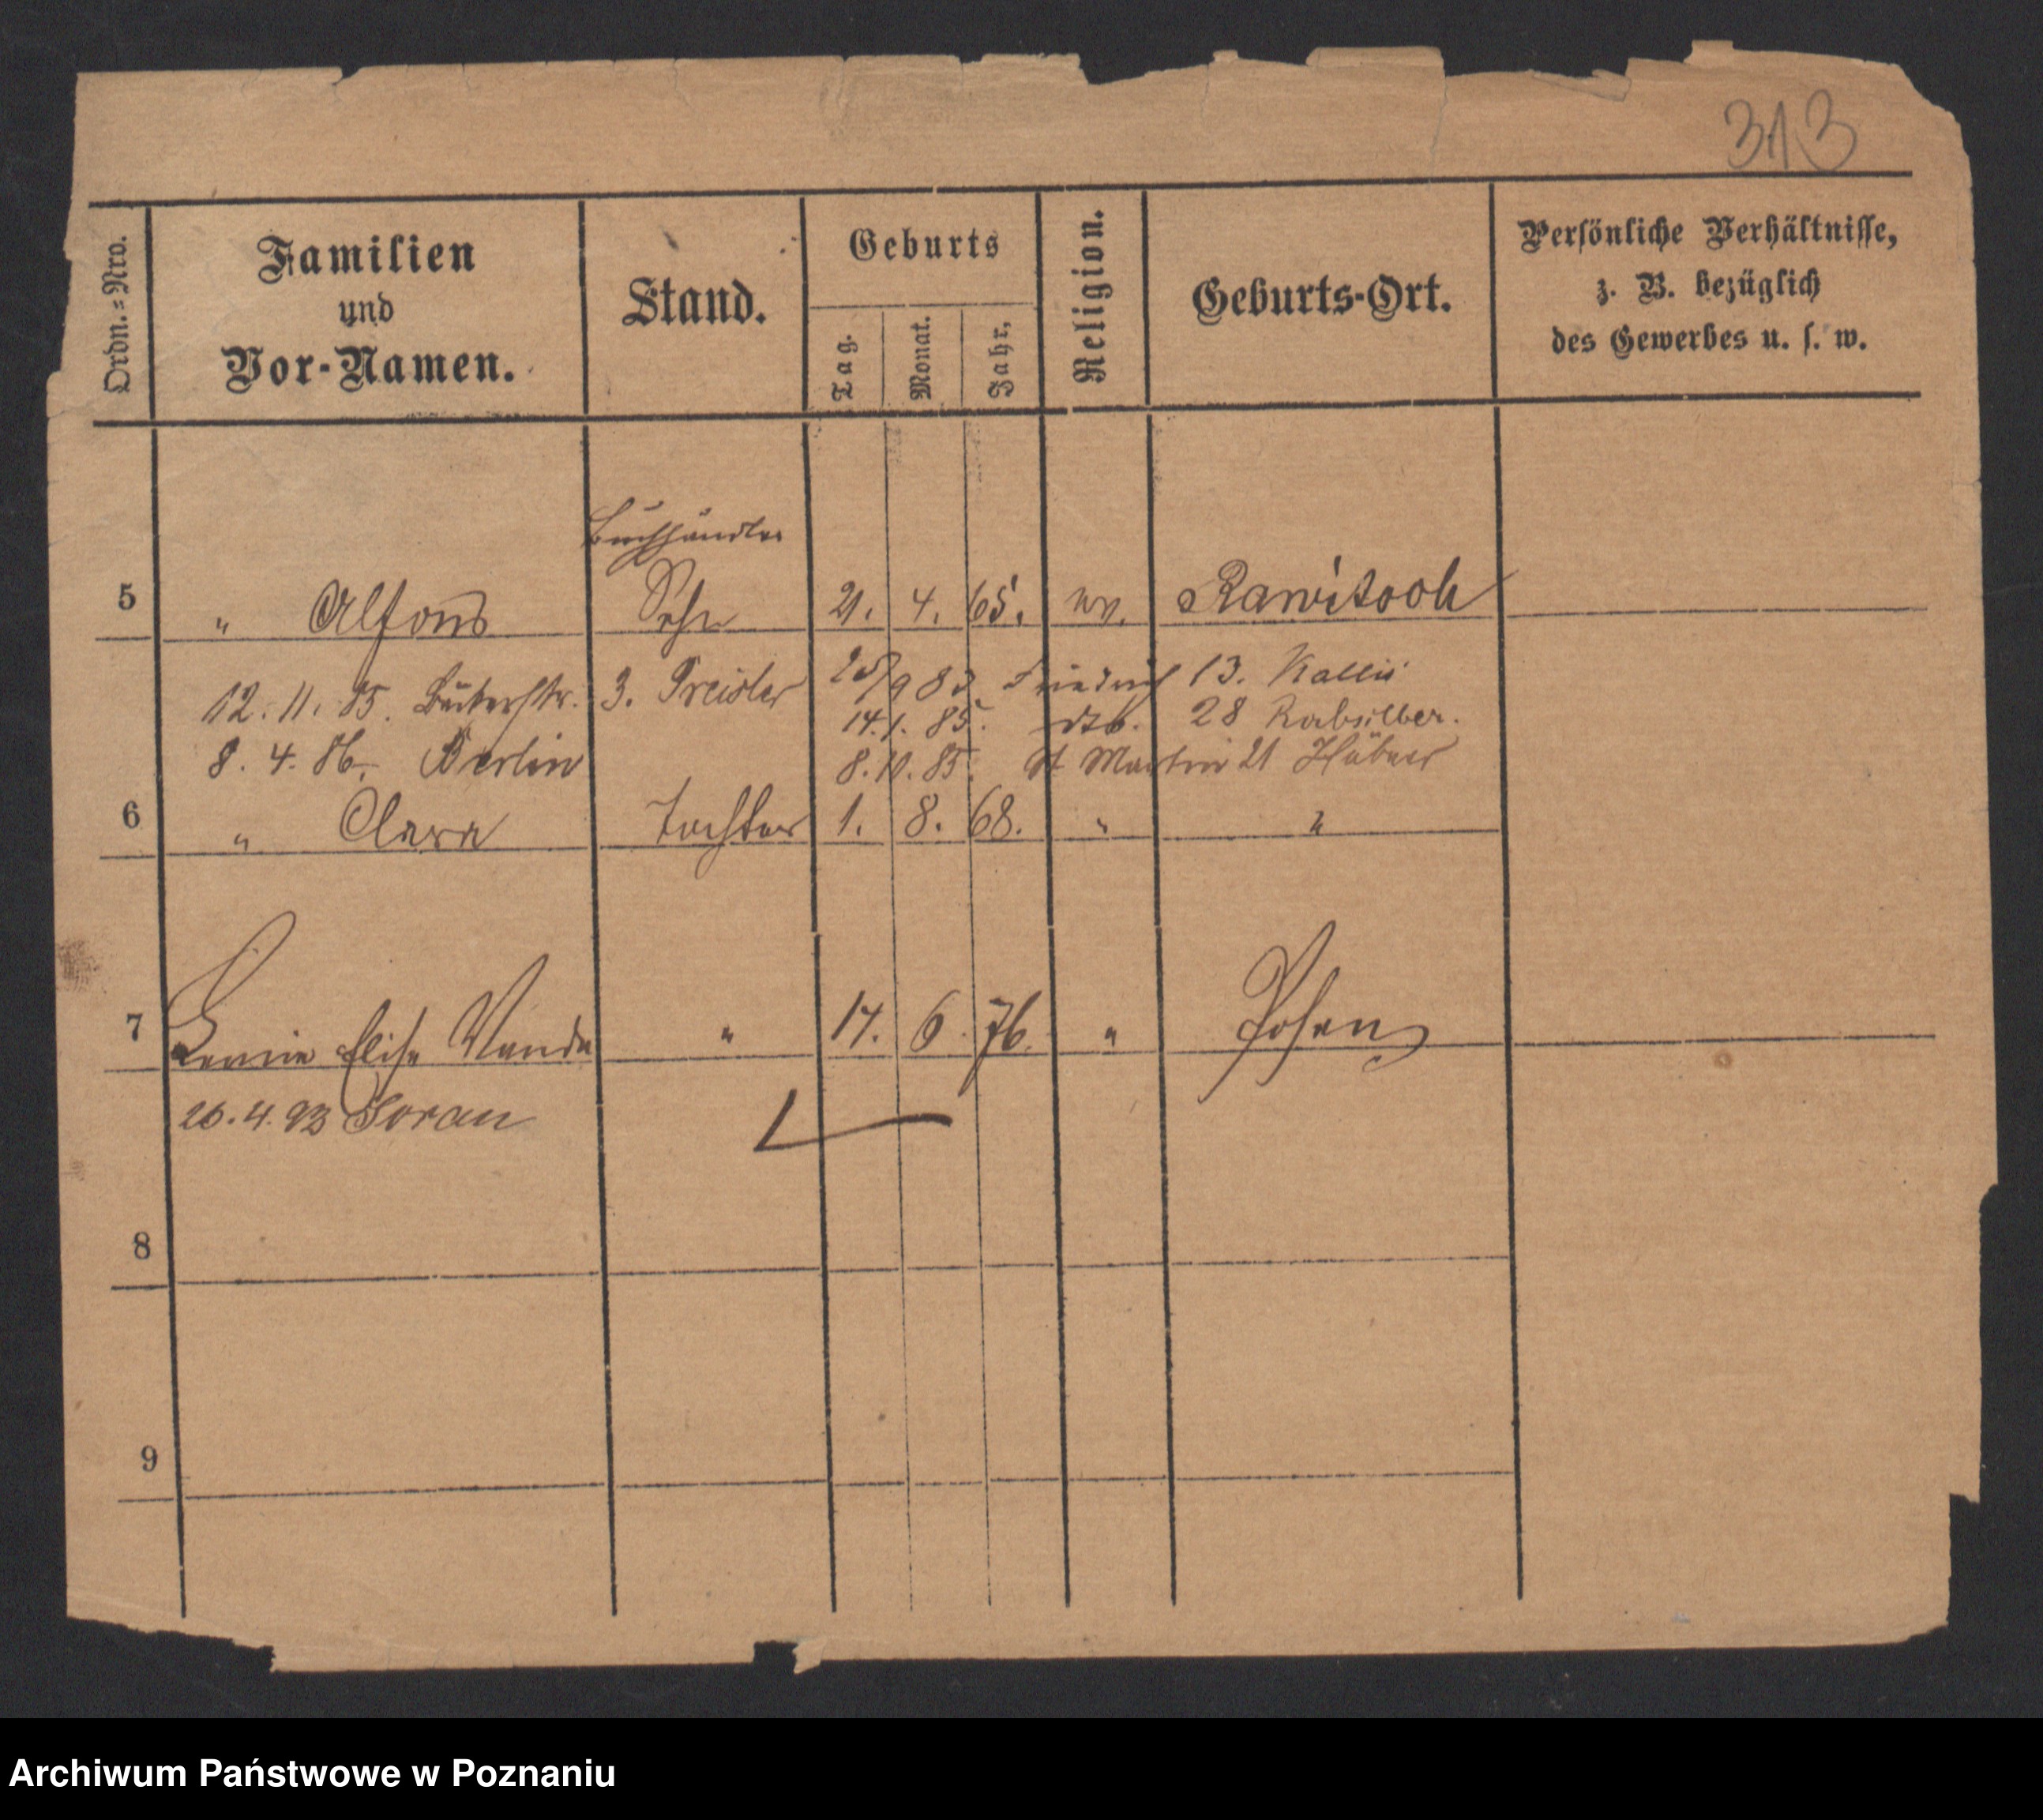 313
Ordn.=Nro.
Familien
und
Vor-Namen.
Stand.
Geburts
Tag.
Monat.
Jahr.
Religion.
Geburts-Ort.
Persönliche Verhältnisse,
z. B. bezüglich
des Gewerbes u. s. w.
Buchhändler
5 " Alfons Sohn 21. 4. 65. ev. Rawitsch
12. 11. 85. 3. Preisler 25/9 83. Friedrich 13. Kallii
14.1. 85. dto. 28 Rabsilber.
8. 4. 86. Berlin 8.10.85. St Martin 21 Hübner
6 " Clara Tochter 1. 8. 68. " "
7 Elise Wanda " 14. 6. 76. " Posen
26.4.93 Soran
8
9
Archiwum Państwowe w Poznaniu